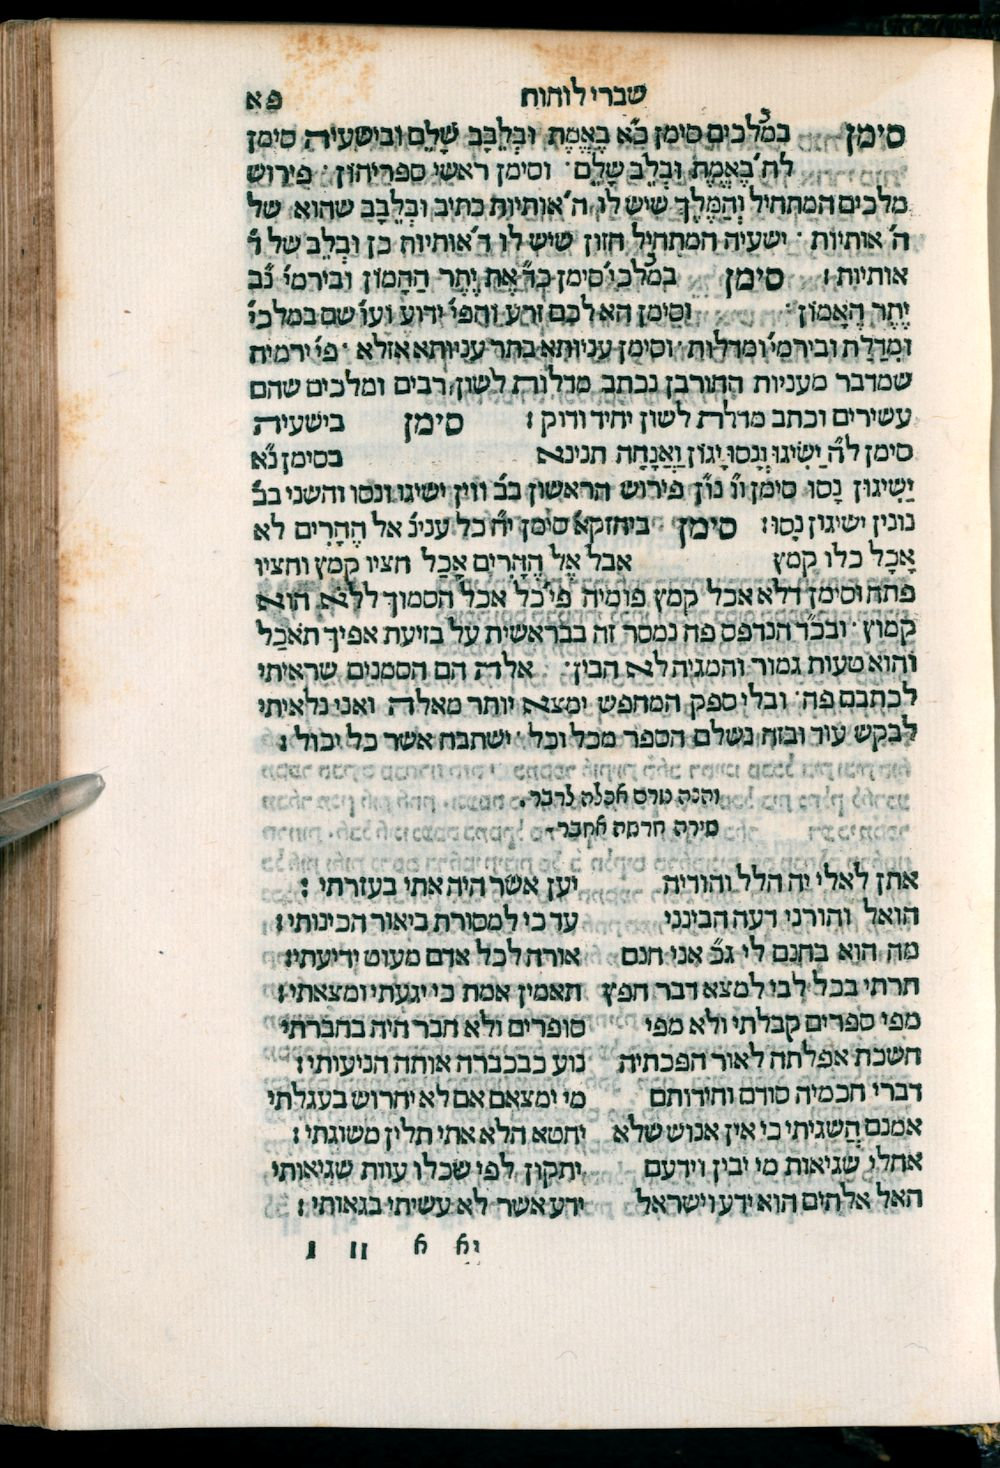 שברי לוחות פא
סימן במלכים סימן כ֝א בֶּאֱמֶת וּבְלֵבָב שָׁלֵם ובישעיה סימן
לח׳ בֶּאֱמֶת וּבְלֵב שָׁלֵם · וסימן ראשי ספריהון · פירוש
מלכים המתחיל וְהַמֶּלֶךְ שיש לו ה׳ אותיות כתיב וּבְלֵבָב שהוא של
ה׳ אותיות · ישעיה המתחיל חזון שיש לו ד׳ אותיות כן וּבְלֵב של ד֝
אותיות : סימן במלכי׳ סימן כה֝ אֶת יֶתֶר הַהָמוֹן ובירמי׳ נ֝ב
יֶתֶר הָאָמוֹן · וסימן הא לכם זרע והפי׳ ידוע ועו׳ שם במלכי׳
וּמִדַּלַּת ובירמי׳ ומדלות · וסימן עניותא בתר עניותא אזלא · פי׳ ירמיה
שמדבר מעניות החורבן נכתב מדלות לשון רבים ומלכים שהם
עשירים וכתב מדלת לשון יחיד ודוק : סימן בישעיה
סימן לה֝ יַשִּׂיגוּ וְנָסוּ יָגוֹן וַאֲנָחָה תנינא בסימן נ֝א
יַשִּׂיגוּן נָסוּ סימן ו֝ו נ֝ון פירוש הראשון בב֝ ווין ישיגו ונסו והשני בב֝
נונין ישיגון נָסוּ : סימן ביחזקא׳ סימן י֝ח כל עניינ׳ אל הֶהָרִים לא
אָכָל כלו קמץ אבל אֶל הֶהָרִים אָכַל חציו קמץ וחציו
פתח וסימן דלא אכל קמץ פומיה פי׳ כל אכל הסמוך ללא הוא
קמוץ · ובכ֝ד הנדפס פה נמסר זה בבראשית על בזיעת אפיך תאכַל
והוא טעות גמור והמגיה לא הבין · אלה הם הסמנים שראיתי
לכתבם פה · ובלי ספק המחפש ימצא יותר מאלה ואני נלאיתי
לבקש עוד ובזה נשלם הספר מכל וכל · ישתבח אשר כל יכול :
והנה טרם אכלה לדבר .
שירה חדשה אחבר .
אתן לאלי יה הלל והודיה יען אשר היה אתי בעזרתי :
הואל והורני דעה הבינני עד כי למסורת ביאור הכינותי :
מה הוא בחנם לי ג֝כ אני חנם אורה לכל אדם מעוט ידיעתי :
חרתי בכל לבי למצא דבר חפץ תאמין אמת כי יגעתי ומצאתי :
מפי ספרים קבלתי ולא מפי סופרים ולא חבר היה בחברתי
חשכת אפלתה לאור הפכתיה נוע כבכברה אותה הניעותי :
דברי חכמיה סודם וחידותם מי ימצאם אם לא יחרוש בעגלתי
אמנם הֲשגיתי כי אין אנוש שלא יחטא הלא אתי תלין משוגתי :
אחלי שגיאות מי יבין וידעם יתקון לפי שכלו עוות שגיאותי
האל אלהים הוא ידע וישראל ידע אשר לא עשיתי בגאותי :
וא א וו ו